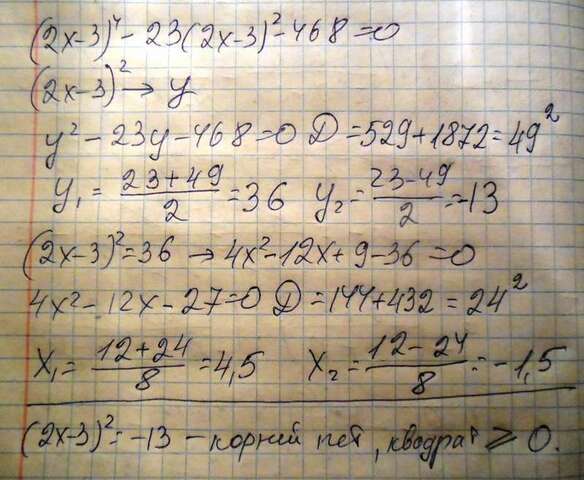 (2x-3)⁴ - 23(2x-3)² - 468 = 0
(2x-3)² → y
y² - 23y - 468 = 0 D = 529 + 1872 = 49²
y₁ = (23+49)/2 = 36 y₂ = (23-49)/2 = -13
(2x-3)² = 36 → 4x² - 12x + 9 - 36 = 0
4x² - 12x - 27 = 0 D = 144 + 432 = 24²
x₁ = (12+24)/8 = 4,5 x₂ = (12-24)/8 = -1,5
(2x-3)² = -13 - корней нет, квадрат ⩾ 0.